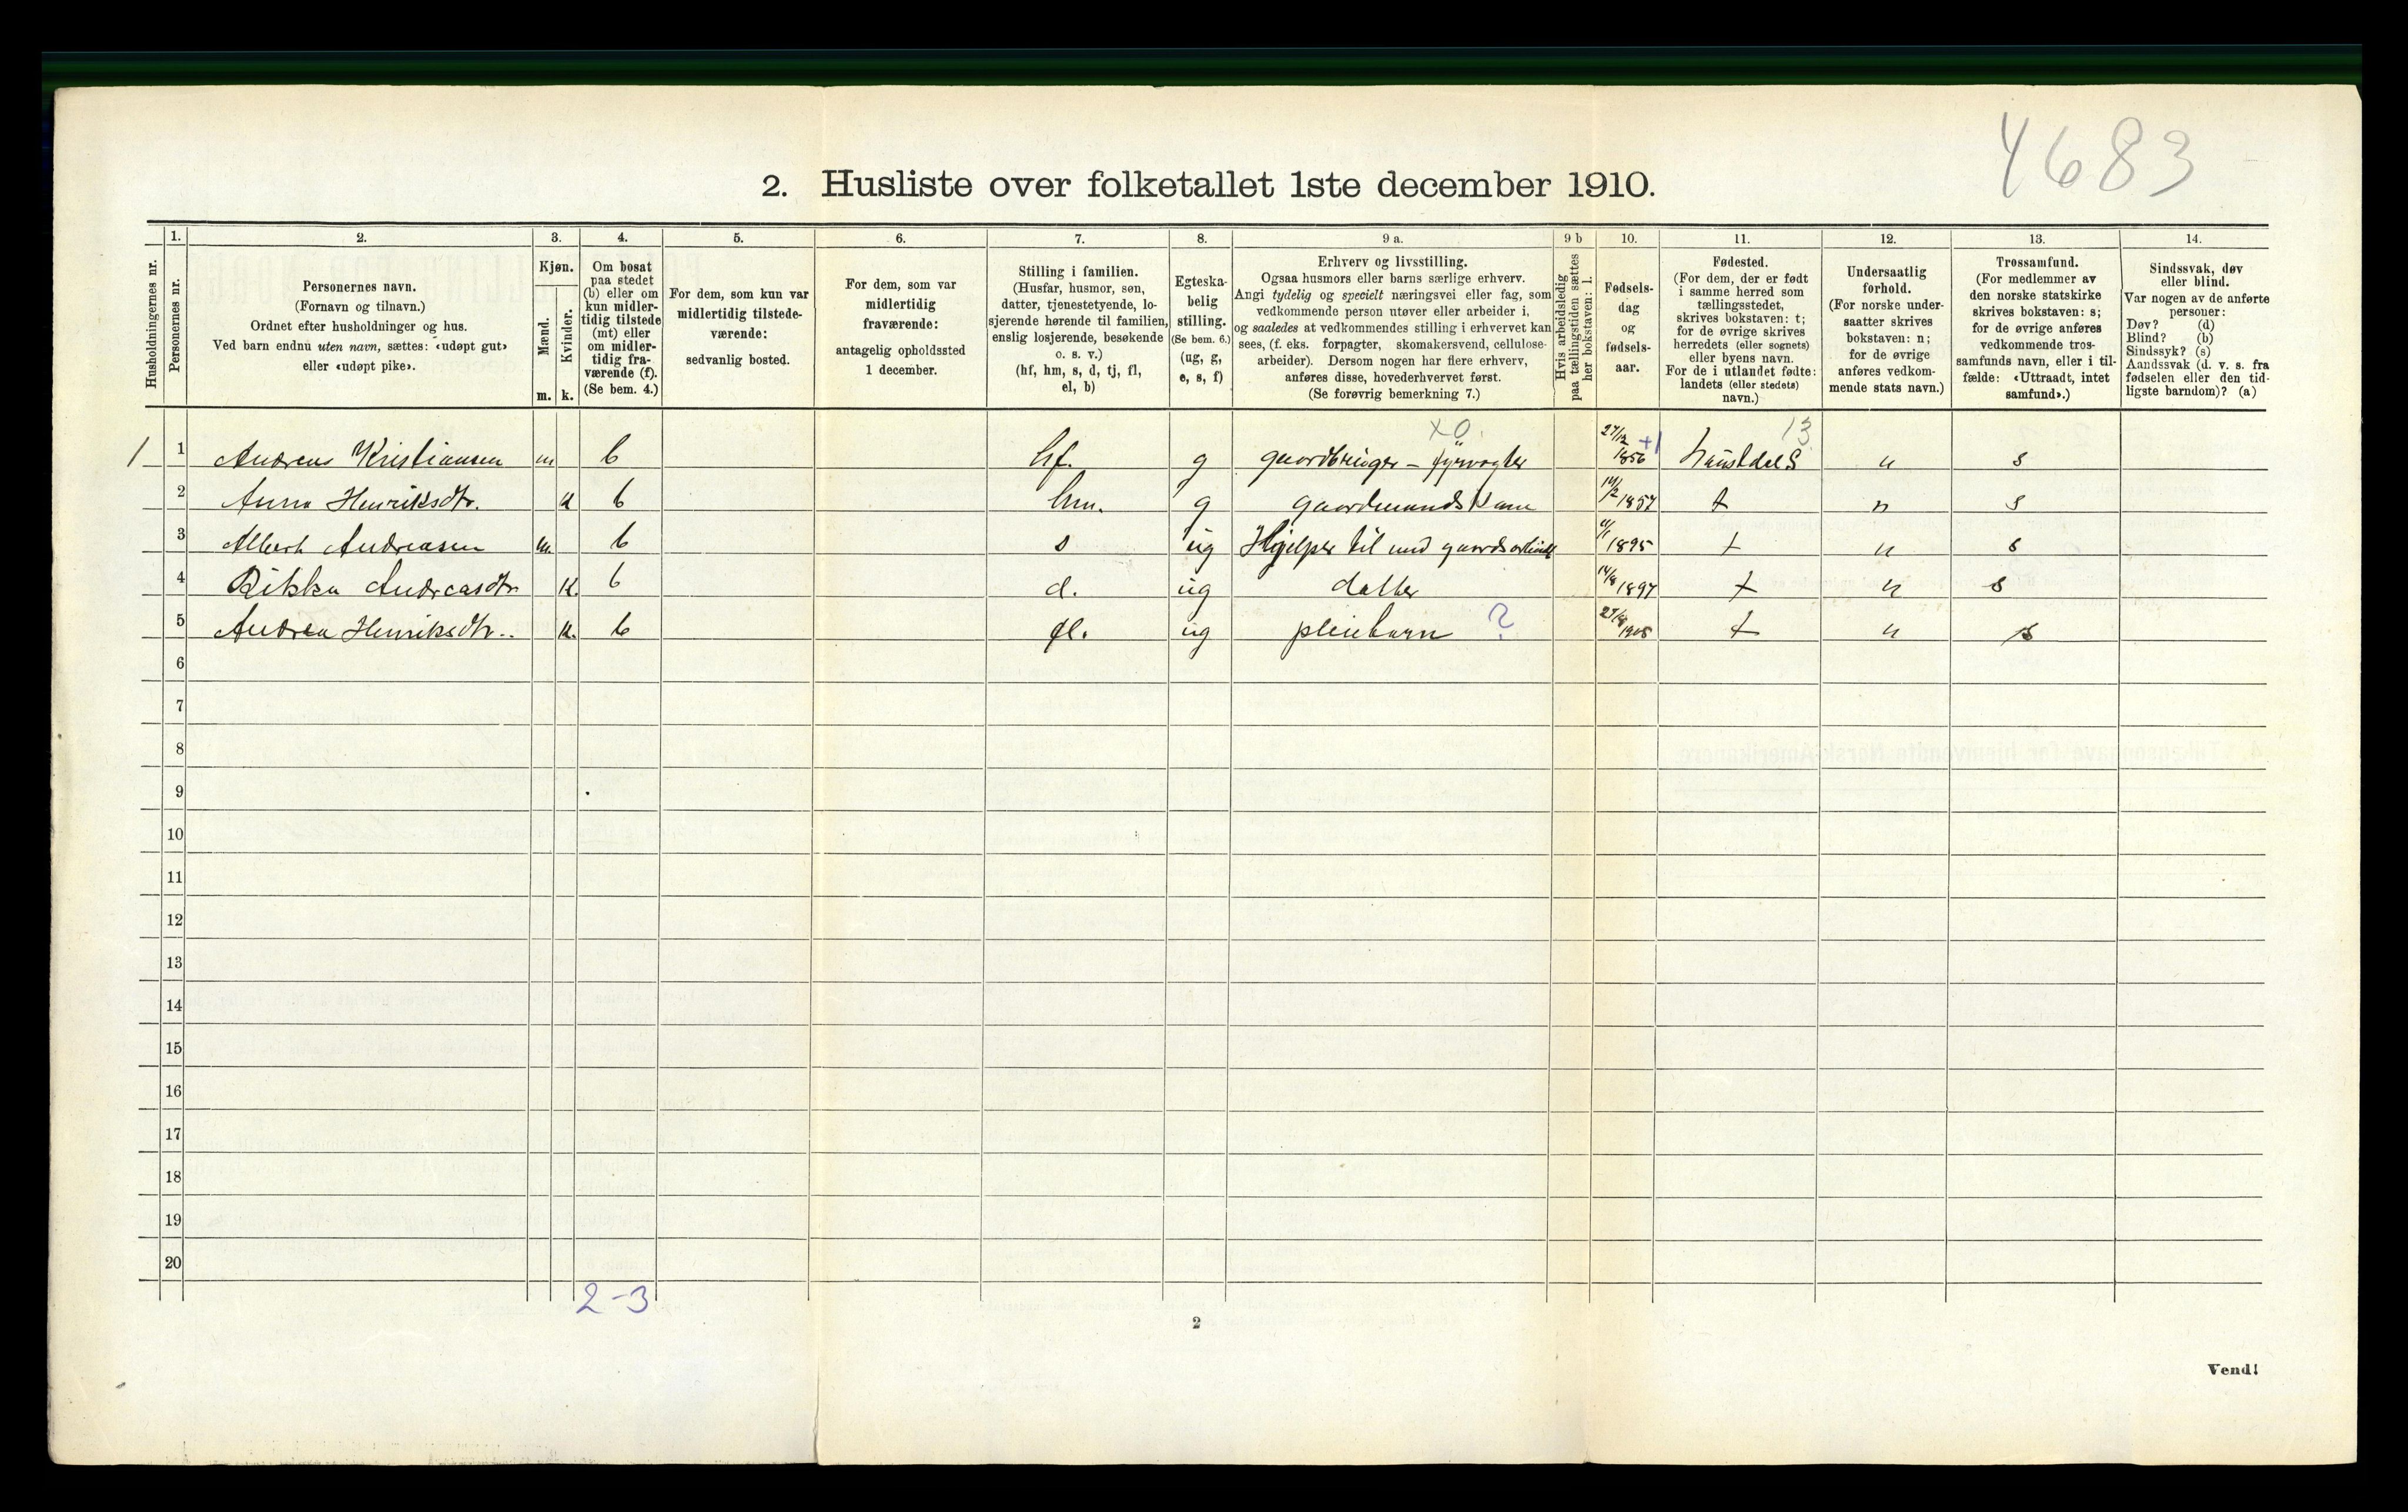 4683
2. Husliste over folketallet 1ste december 1910.
Husholdningernes nr.
1. Personernes nr.
2. Personernes navn.
(Fornavn og tilnavn.)
Ordnet efter husholdninger og hus.
Ved barn endnu uten navn, sættes: «udøpt gut»
eller «udøpt pike».
3. Kjøn.
Mænd. m.
Kvinder. k.
4. Om bosat
paa stedet
(b) eller om
kun midler-
tidig tilstede
(mt) eller
om midler-
tidig fra-
værende (f).
(Se bem. 4.)
5. For dem, som kun var
midlertidig tilstede-
værende:
sedvanlig bosted.
6. For dem, som var
midlertidig
fraværende:
antagelig opholdssted
1 december.
7. Stilling i familien.
(Husfar, husmor, søn,
datter, tjenestetyende, lo-
sjerende hørende til familien,
enslig losjerende, besøkende
o. s. v.)
(hf, hm, s, d, tj, fl,
el, b)
8. Egteska-
belig
stilling.
(Se bem. 6.)
(ug, g,
e, s, f)
9 a. Erhverv og livsstilling.
Ogsaa husmors eller barns særlige erhverv.
Angi tydelig og specielt næringsvei eller fag, som
vedkommende person utøver eller arbeider i,
og saaledes at vedkommendes stilling i erhvervet kan
sees, (f. eks. forpagter, skomakersvend, cellulose-
arbeider). Dersom nogen har flere erhverv,
anføres disse, hovederhvervet først.
(Se forøvrig bemerkning 7.)
9 b Hvis arbeidsledig
paa tællingstiden sættes
her bokstaven: l.
10. Fødsels-
dag
og
fødsels-
aar.
11. Fødested.
(For dem, der er født
i samme herred som
tællingsstedet,
skrives bokstaven: t;
for de øvrige skrives
herredets (eller sognets)
eller byens navn.
For de i utlandet fødte:
landets (eller stedets)
navn.)
12. Undersaatlig
forhold.
(For norske under-
saatter skrives
bokstaven: n;
for de øvrige
anføres vedkom-
mende stats navn.)
13. Trossamfund.
(For medlemmer av
den norske statskirke
skrives bokstaven: s;
for de øvrige anføres
vedkommende tros-
samfunds navn, eller i til-
fælde: «Uttraadt, intet
samfund».)
14. Sindssvak, døv
eller blind.
Var nogen av de anførte
personer:
Døv? (d)
Blind? (b)
Sindssyk? (s)
Aandssvak (d. v. s. fra
fødselen eller den tid-
ligste barndom)? (a)
x0. 13
1 1 Andreas Kristiansen m b hf. g gaardbruger - fyrvogter 27/12 1856 +1 n s
2 Anna Henriksdtr. k b hm. g gaardmandskone 1857 t n s
3 Albert Andreasen m b s ug Hjelper til med gaardsarbeide 1895 t n s
4 Rikka Andreasdtr k. b d. ug datter 14/8 1897 t n s
5 Andrea Henriksdtr. k. b fl. ug pleiebarn ? 1905 t n s
6
7
8
9
10
11
12
13
14
15
16
17
18
19
20
2-3
2
Vend!